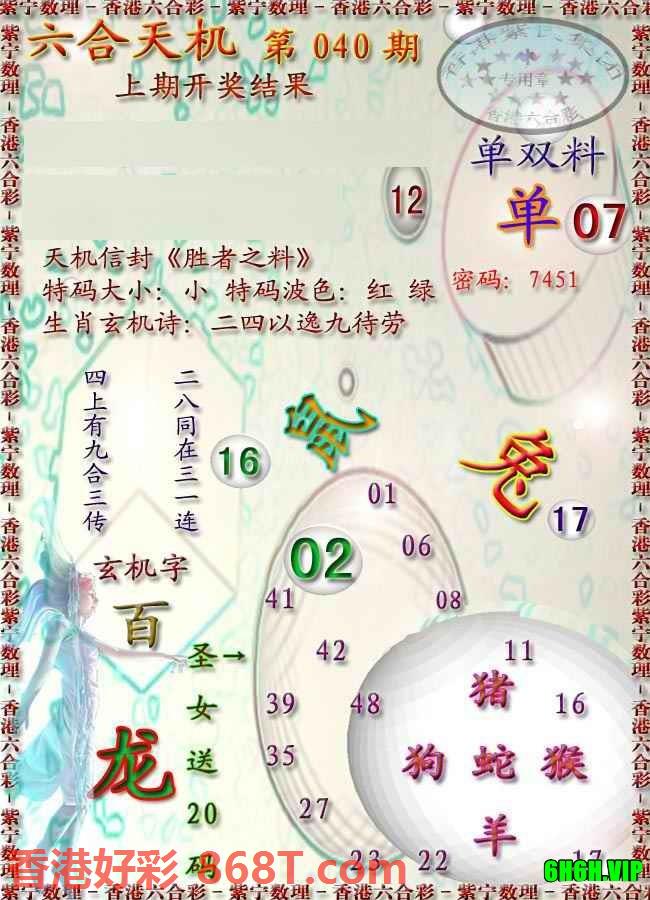 紫宁数理－香港六合彩－紫宁数理－香港六合彩－紫宁数理－香港六合彩
六合天机 第 040 期
上期开奖结果
专用章
香港六合彩
单双料
12
单 07
天机信封《胜者之料》
密码：7451
特码大小：小 特码波色：红 绿
生肖玄机诗：二四以逸九待劳
二八同在三一连
四上有九合三传
16
兔
17
01
02
06
41
08
玄机字
百
42
11
圣女送20码→
39
48
猪
16
龙
35
狗 蛇 猴
27
羊
23
22
17
香港好彩 868T.com
6H6H.VIP
紫宁数理－香港六合彩－紫宁数理－香港六合彩－紫宁数理－香港六合彩